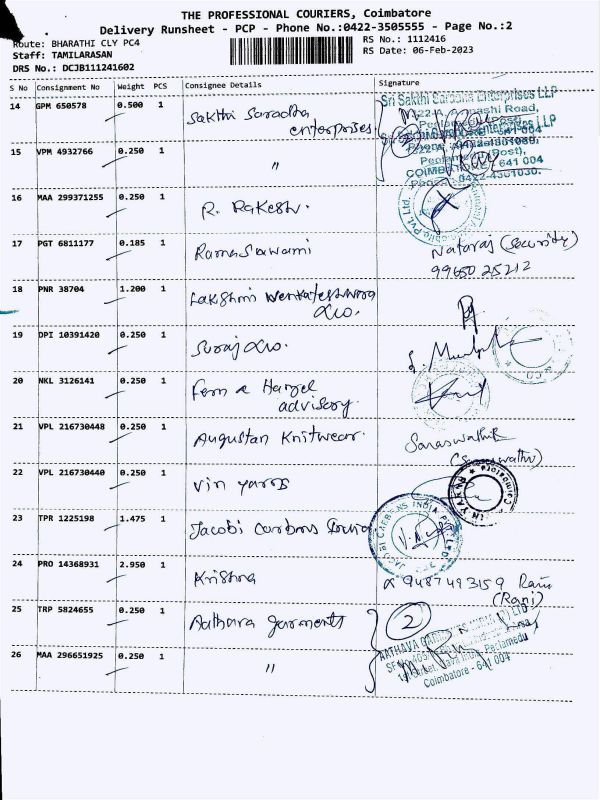 THE PROFESSIONAL COURIERS, Coimbatore
Delivery Runsheet - PCP - Phone No.:0422-3505555 - Page No.:2
Route: BHARATHI CLY PC4
RS No.: 1112416
Staff: TAMILARASAN
RS Date: 06-Feb-2023
DRS No.: DCJB111241602
S No Consignment No Weight PCS Consignee Details Signature
14 GPM 650578 0.500 1 Sakthi Saradha
enterprises
Sri Sakthi Saradha Enterprises LLP
15 VPM 4932766 0.250 1 "
COIMBATORE - 641 004
Phone: 0422-4301030.
16 MAA 299371255 0.250 1 R. Rakesh.
17 PGT 6811177 0.185 1 Ramasawami Nataraj (Security)
99650 25212
18 PNR 38704 1.200 1 Lakshmi Venkateshwara
19 DPI 10391420 0.250 1 Suraj
20 NKL 3126141 0.250 1 Fern a Hazel
advisory.
21 VPL 216730448 0.250 1 Augustan Knitwear. Saraswathi
(Saraswathi)
22 VPL 216730440 0.250 1 Vin yarns
23 TPR 1225198 1.475 1 Jacobi Carbons
JACOBI CARBONS INDIA PVT LTD
24 PRO 14368931 2.950 1 Krishna 9487493159 Rani
(Rani)
25 TRP 5824655 0.250 1 Aathava garments 2
26 MAA 296651925 0.250 1 "
Coimbatore - 641 004